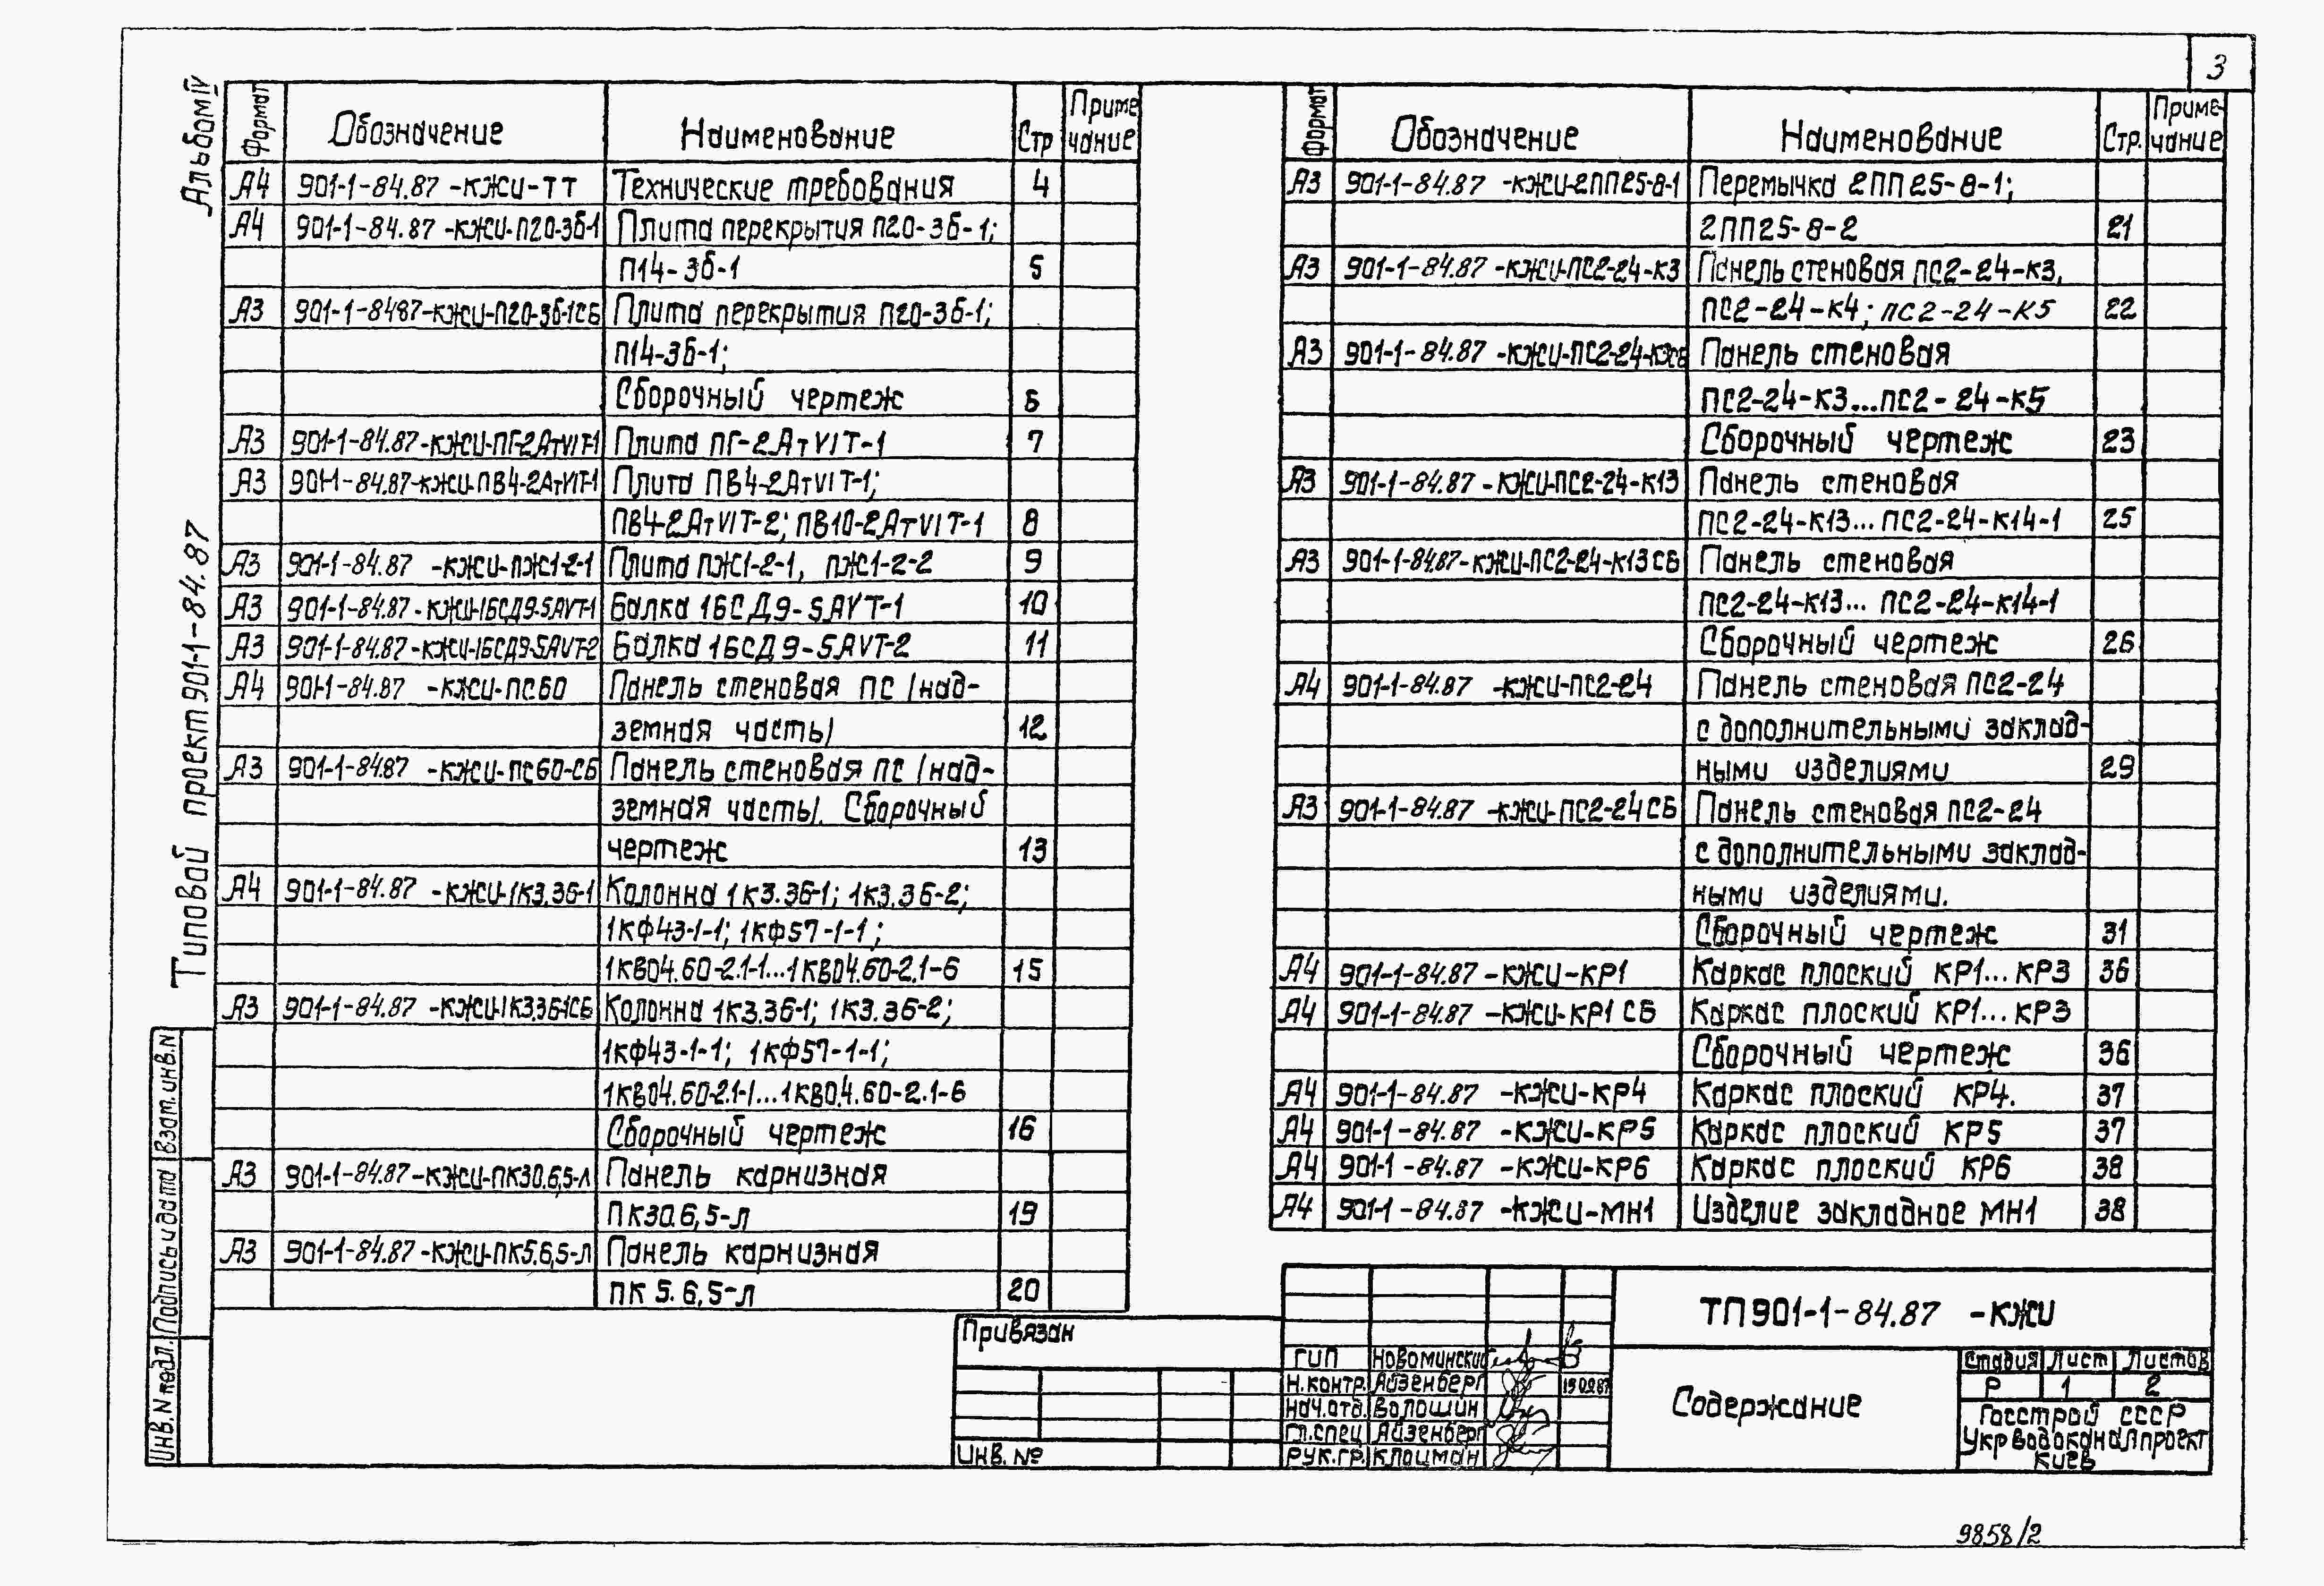 3
Альбом IV
Типовой проект 901-1-84.87
Формат Обозначение Наименование Стр Приме чание
А4 901-1-84.87 -КЖИ-ТТ Технические требования 4
А4 901-1-84.87 -КЖИ-П20-3б-1 Плита перекрытия П20-3б-1;
П14-3б-1 5
А3 901-1-8487-КЖИ-П20-3б-1СБ Плита перекрытия П20-3б-1;
П14-3б-1;
Сборочный чертеж 6
А3 901-1-84.87-КЖИ-ПГ-2АтVIТ-1 Плита ПГ-2АтVIТ-1 7
А3 901-1-84.87-КЖИ-ПВ4-2АтVIТ-1 Плита ПВ4-2АтVIТ-1;
ПВ4-2АтVIТ-2; ПВ10-2АтVIТ-1 8
А3 901-1-84.87 -КЖИ-ПЖ1-2-1 Плита ПЖ1-2-1, ПЖ1-2-2 9
А3 901-1-84.87-КЖИ-1БСД9-5АVТ-1 Балка 1БСД9-5АVТ-1 10
А3 901-1-84.87-КЖИ-1БСД9-5АVТ-2 Балка 1БСД9-5АVТ-2 11
А4 901-1-84.87 -КЖИ-ПС60 Панель стеновая ПС /над-
земная часть/ 12
А3 901-1-84.87 -КЖИ-ПС60-СБ Панель стеновая ПС /над-
земная часть/. Сборочный
чертеж 13
А4 901-1-84.87 -КЖИ-1К3.36-1 Колонна 1К3.36-1; 1К3.36-2;
1КФ43-1-1; 1КФ57-1-1;
1КВ04.60-2.1-1...1КВ04.60-2.1-6 15
А3 901-1-84.87 -КЖИ-1К3.36-1СБ Колонна 1К3.36-1; 1К3.36-2;
1КФ43-1-1; 1КФ57-1-1;
1КВ04.60-2.1-1...1КВ0.4.60-2.1-6
Сборочный чертеж 16
А3 901-1-84.87-КЖИ-ПК30.6,5-Л Панель карнизная
ПК30.6,5-Л 19
А3 901-1-84.87-КЖИ-ПК5.6,5-Л Панель карнизная
ПК 5.6,5-Л 20
Формат Обозначение Наименование Стр. Приме- чание
А3 901-1-84.87 -КЖИ-2ПП25-8-1 Перемычка 2ПП25-8-1;
2ПП25-8-2 21
А3 901-1-84.87 -КЖИ-ПС2-24-К3 Панель стеновая ПС2-24-К3,
ПС2-24-К4; ПС2-24-К5 22
А3 901-1-84.87 -КЖИ-ПС2-24-К3СБ Панель стеновая
ПС2-24-К3...ПС2-24-К5
Сборочный чертеж 23
А3 901-1-84.87 -КЖИ-ПС2-24-К13 Панель стеновая
ПС2-24-К13... ПС2-24-К14-1 25
А3 901-1-84.87-КЖИ-ПС2-24-К13СБ Панель стеновая
ПС2-24-К13... ПС2-24-К14-1
Сборочный чертеж 26
А4 901-1-84.87 -КЖИ-ПС2-24 Панель стеновая ПС2-24
с дополнительными заклад-
ными изделиями 29
А3 901-1-84.87 -КЖИ-ПС2-24СБ Панель стеновая ПС2-24
с дополнительными заклад-
ными изделиями.
Сборочный чертеж 31
А4 901-1-84.87 -КЖИ-КР1 Каркас плоский КР1...КР3 36
А4 901-1-84.87 -КЖИ-КР1 СБ Каркас плоский КР1...КР3
Сборочный чертеж 36
А4 901-1-84.87 -КЖИ-КР4 Каркас плоский КР4. 37
А4 901-1-84.87 -КЖИ-КР5 Каркас плоский КР5 37
А4 901-1-84.87 -КЖИ-КР6 Каркас плоский КР6 38
А4 901-1-84.87 -КЖИ-МН1 Изделие закладное МН1 38
Взам.инв.N
Подпись и дата
Инв.N подл.
Привязан
Инв. №
ТП901-1-84.87 -КЖИ
ГИП Новоминский
Н.контр. Айзенберг 15.02.87
Нач.отд. Волошин
Гл.спец Айзенберг
Рук.гр. Клоцман
Содержание
Стадия Лист Листов
Р 1 2
Госстрой СССР
Укрводоканалпроект
Киев
9858/2